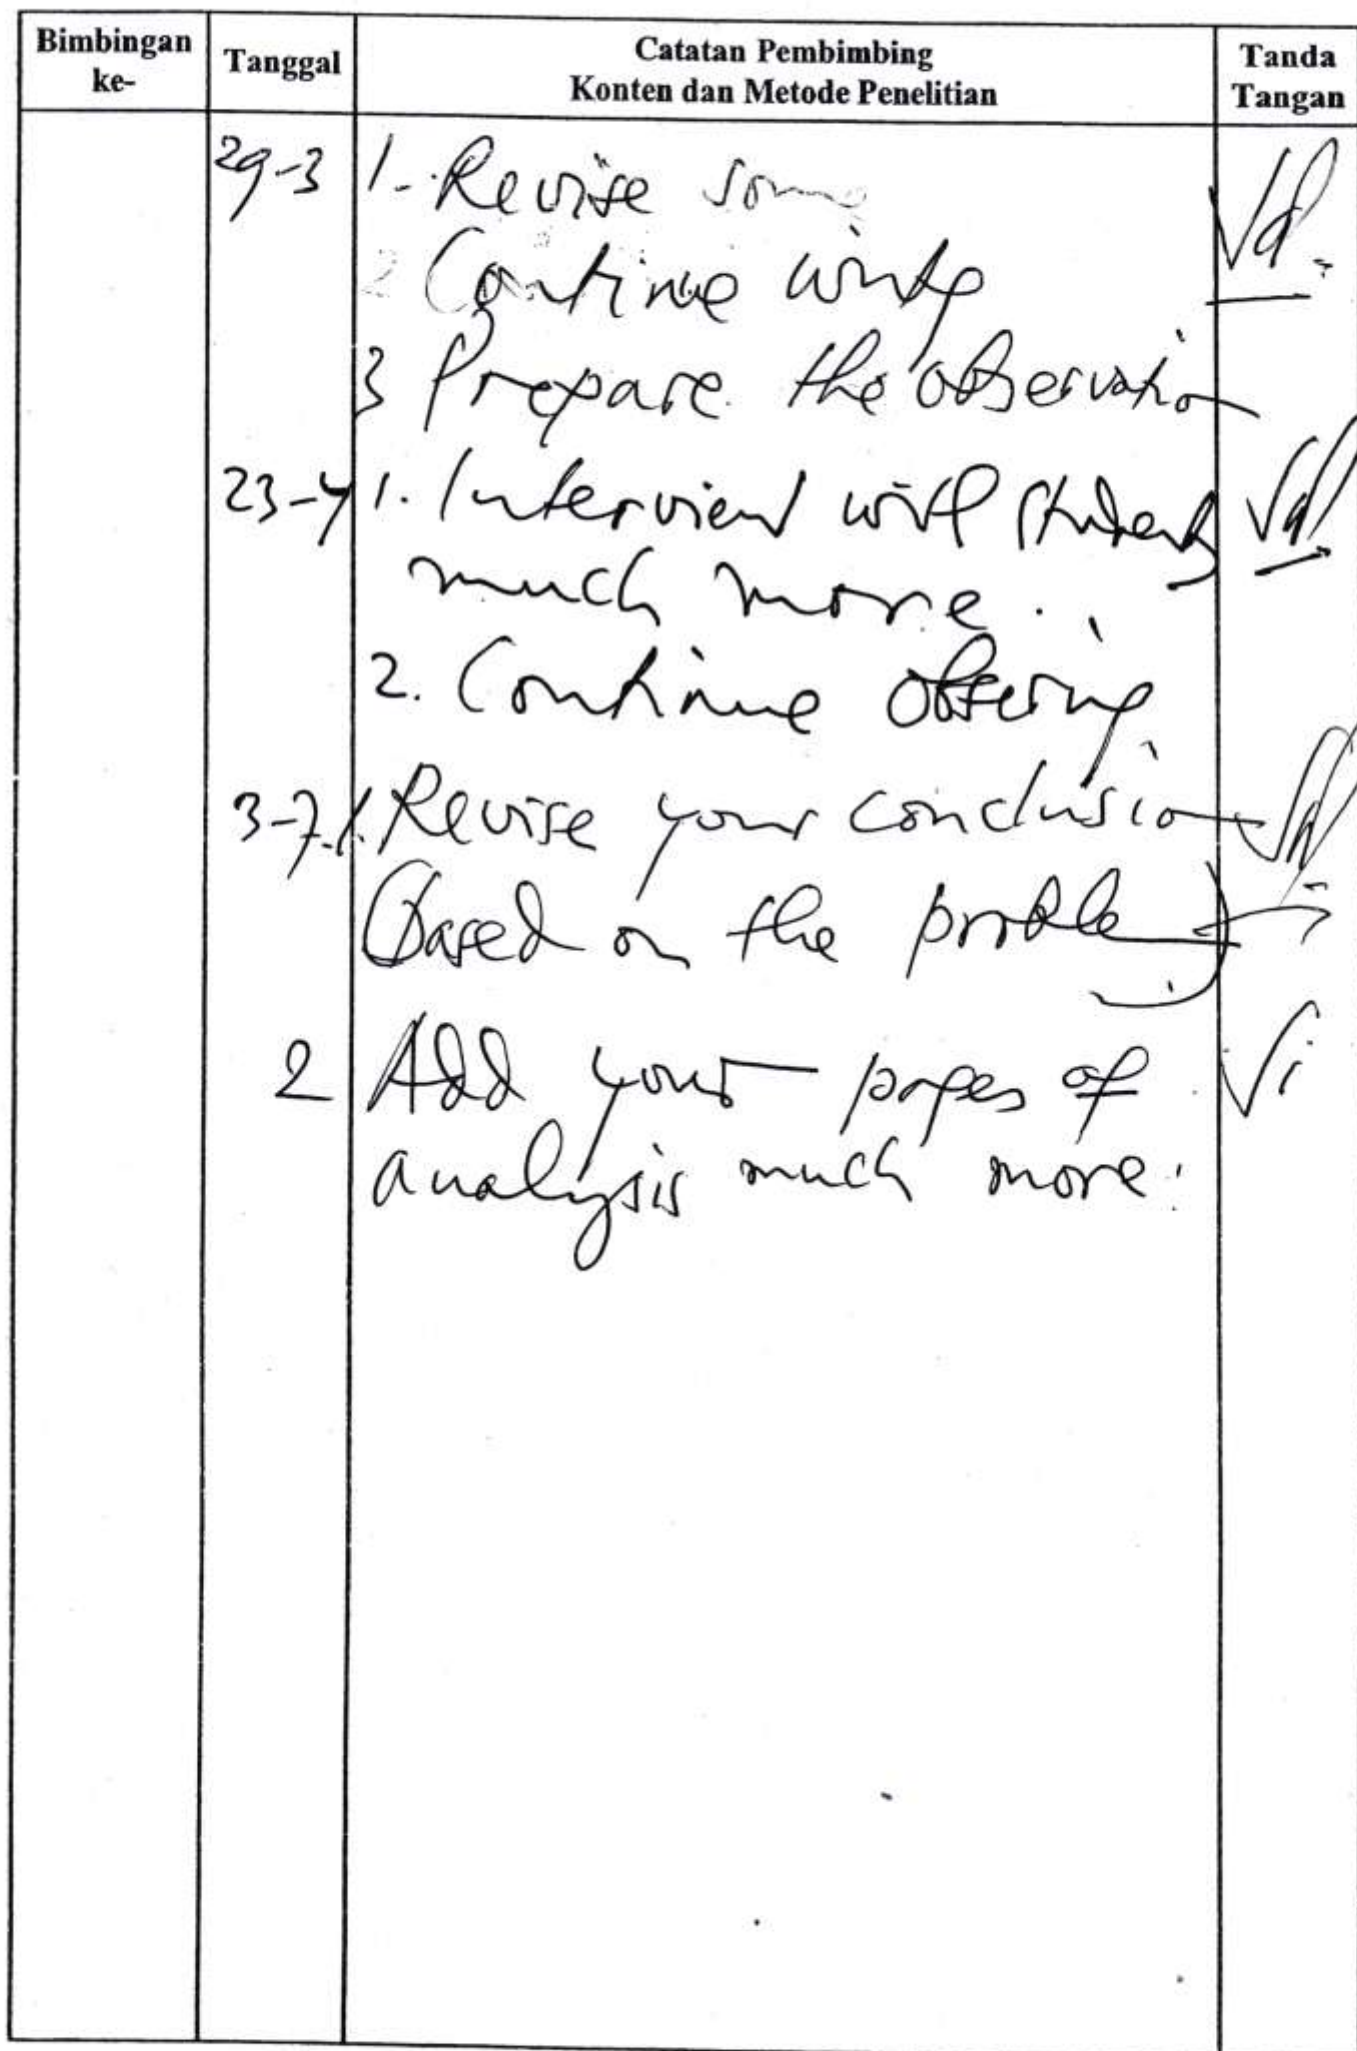 Bimbingan ke-
Tanggal
Catatan Pembimbing
Konten dan Metode Penelitian
Tanda Tangan
29-3 1. Revise some
2 Continue writing
3 Prepare the observation
23-4 1. Interview with students
much more.
2. Continue observing
3-7 1. Revise your conclusion
(based on the problem)
2 Add your pages of
analysis much more.